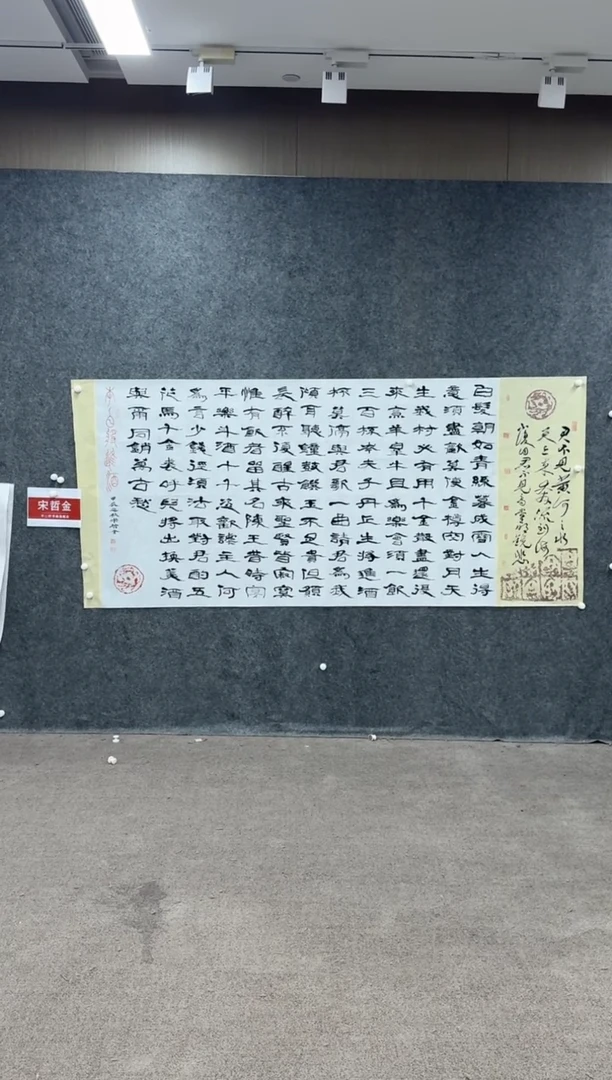 君不見黃河之水
天上來奔流到海
不復回君不見高堂明鏡悲
白髮朝如青絲暮成雪人生得
意須盡歡莫使金樽空對月天
生我材必有用千金散盡還復
來烹羊宰牛且爲樂會須一飲
三百杯岑夫子丹丘生將進酒
杯莫停與君歌一曲請君爲我
傾耳聽鐘鼓饌玉不足貴但願
長醉不復醒古來聖賢皆寂寞
惟有飲者留其名陳王昔時宴
平樂斗酒十千恣歡謔主人何
爲言少錢徑須沽取對君酌五
花馬千金裘呼兒將出換美酒
與爾同銷萬古愁
宋哲金